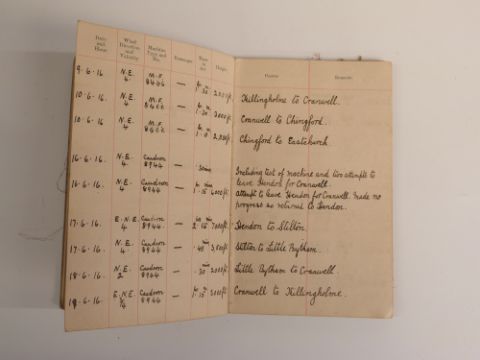 Date and Hour. Wind Direction and Velocity Machine Type and No. Passenger Time in air Height Course Remarks
9.6.16. N.E. 4. M.F. 8466 — 2,000 ft Killingholme to Cranwell.
10.6.16 N.E. 4 M.F. 8466 — 3000 ft Cranwell to Chingford.
10.6.16 N.E. 4 M.F. — 2,000 ft Chingford to Eastchurch
16.6.16. N.E. 4. Caudron 8944 — Including test of machine and two attempts to
leave Hendon for Cranwell.
16.6.16. N.E. 4 Caudron 8944 — 1.15 attempt to leave Hendon for Cranwell. Made no
progress so returned to Hendon.
17.6.16. E.N.E. 4 Caudron 8944 — 2.15 7000 ft Hendon to Stilton
17.6.16. N.E. 4. Caudron 8944 — Stilton to Little Bytham.
18.6.16. N.E. 2 Caudron 8944 — 30 2000 ft Little Bytham to Cranwell.
18.6.16 E.N.E. Caudron 8944 — 1.15 3000 ft Cranwell to Killingholme.